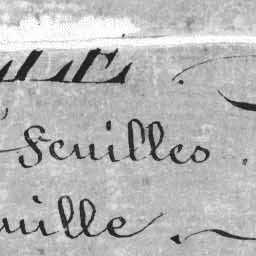 Feuilles.
uille.